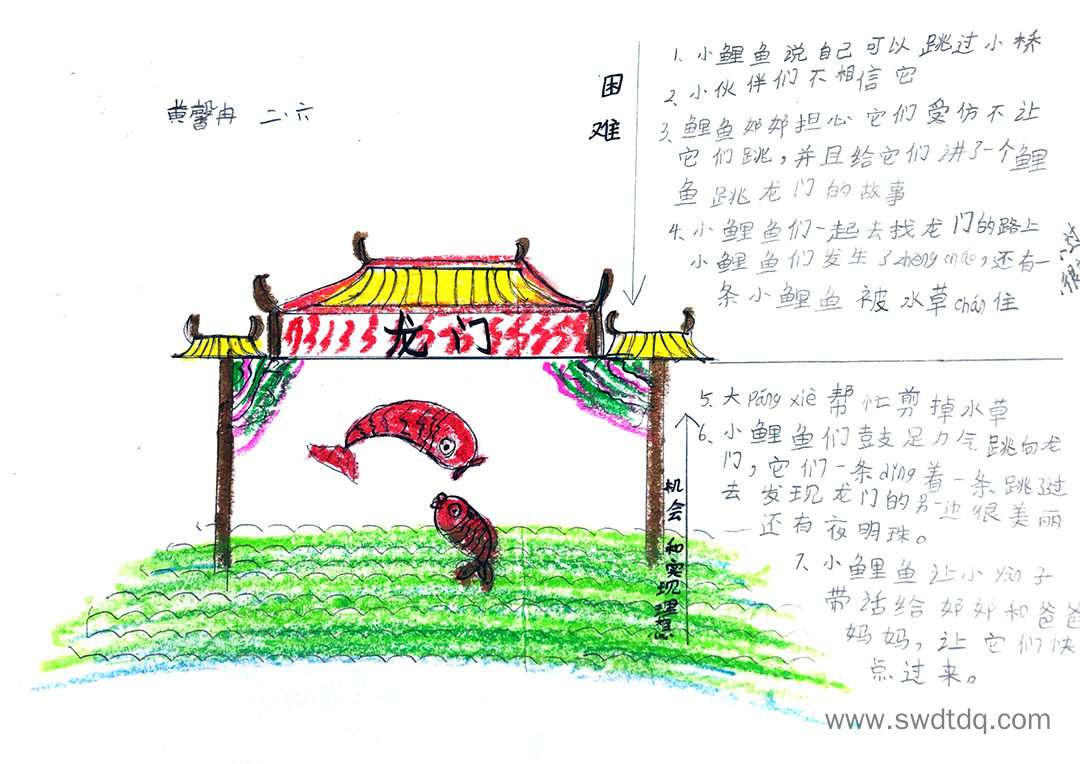 黄馨冉 二.六
困
难
1. 小鲤鱼说自己可以跳过小桥
2. 小伙伴们不相信它
3. 鲤鱼奶奶担心它们受伤不让
它们跳，并且给它们讲了一个鲤
鱼跳龙门的故事
4. 小鲤鱼们一起去找龙门的路上
小鲤鱼们发生了zhēng chǎo，还有一
条小鲤鱼被水草chán住
龙门
5. 大páng xiè帮忙剪掉水草
6. 小鲤鱼们鼓足力气跳向龙
门，它们一条dǐng着一条跳了过
去发现龙门的另一边很美丽
还有夜明珠。
7. 小鲤鱼让小yàn子
带话给奶奶和爸爸
妈妈，让它们快
点过来。
机会和实现理想
www.swdtdq.com